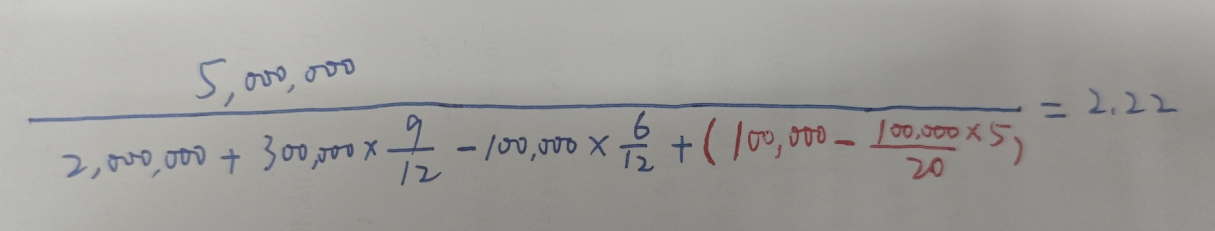 5,000,000
2,000,000 + 300,000 × 9/12 − 100,000 × 6/12 + (100,000 − 100,000 × 5/20) = 2.22